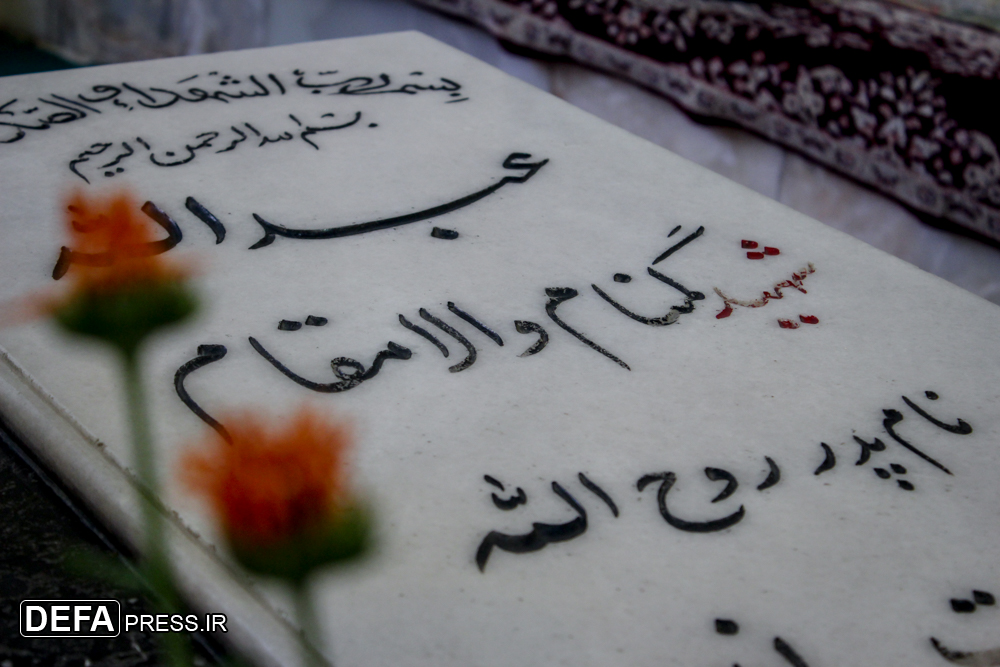 بسم رب الشهداء و الصدیقین
بسم الله الرحمن الرحیم
عبد الله
شهید گمنام والامقام
نام پدر روح الله
DEFAPRESS.IR